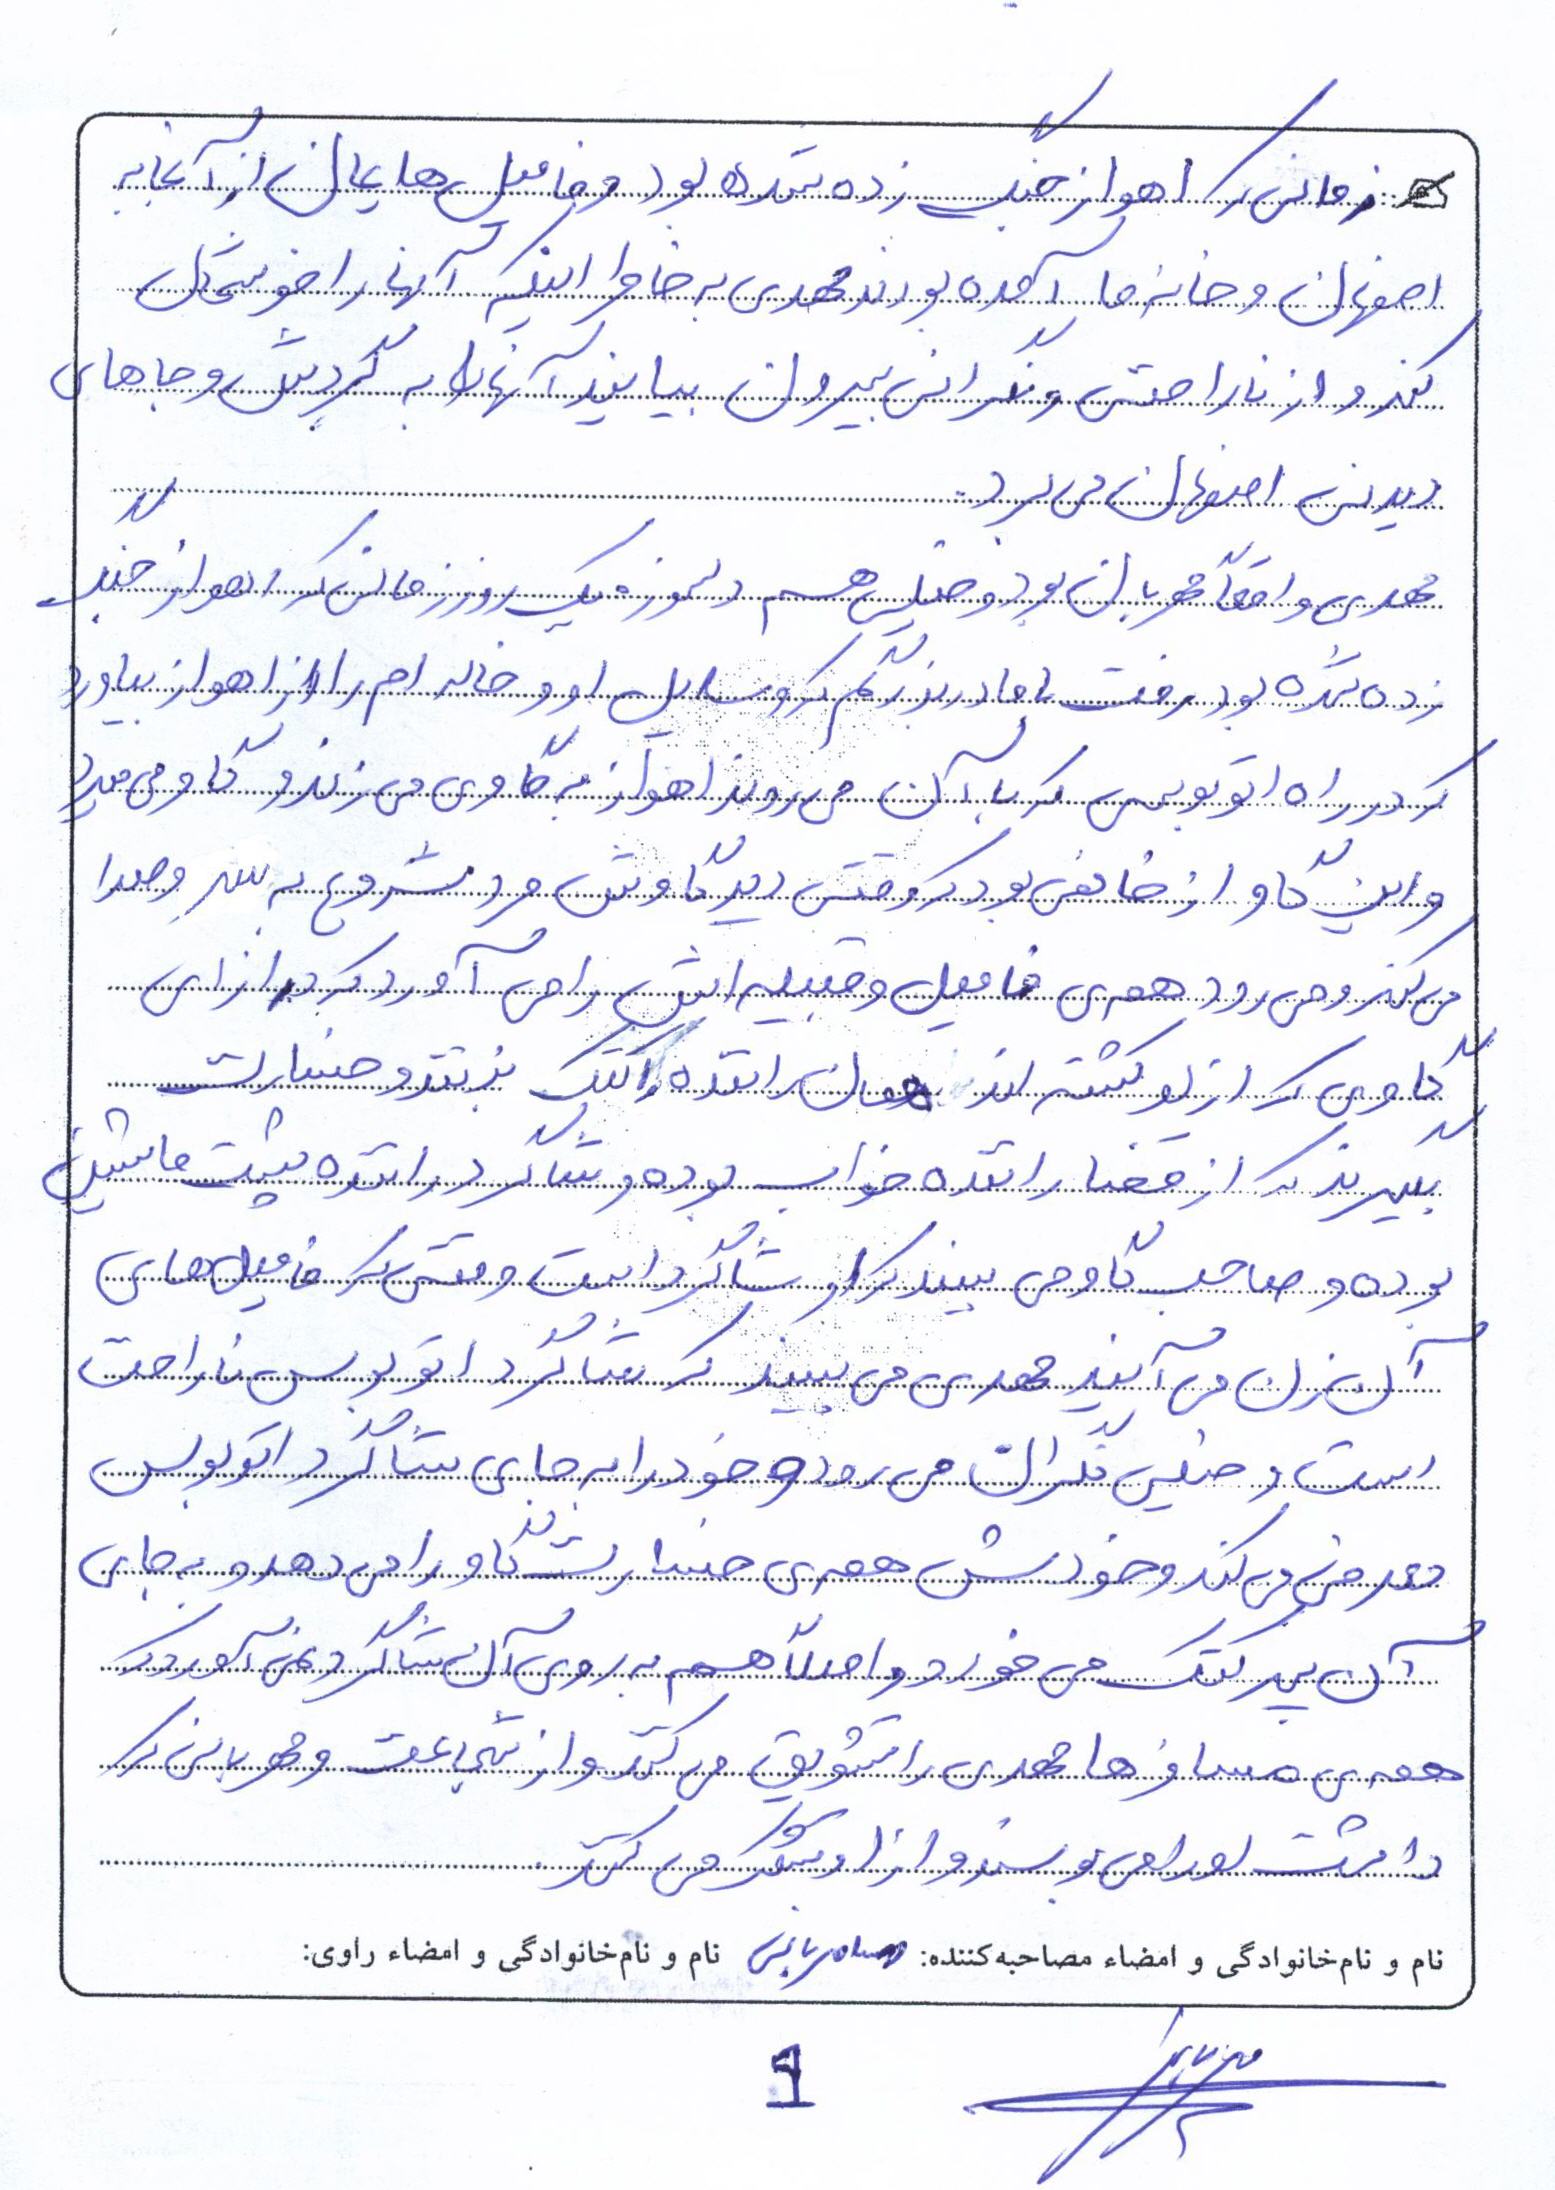 زمانی که اهواز جنگ زده شده بود و فامیل هایمان از آنجا به
اصفهان و خانه ما آمده بودند مهدی به خاطر اینکه آنها را خوشحال
کند و از ناراحتی و نگرانی بیرون بیایند آنها را به گردش و جاهای
دیدنی اصفهان می برد.
مهدی واقعاً مهربان بود و خیلی هم دلسوز، یک روز زمانی که اهواز جنگ
زده شده بود رفت با مادربزرگم که وسایل او و خاله ام را از اهواز بیاورد
که در راه اتوبوسی که با آن می روند اهواز به گاوی می زند و گاو می میرد
و این گاو از خانمی بود که وقتی دید گاوش مرد شروع به سر و صدا
می کند و می رود همه ی فامیل و قبیله اش را می آورد که در ازای
گاوی که از او کشته اند همان راننده را کتک بزنند و خسارت
بگیرند که از قضا راننده خواب بوده و شاگرد راننده پشت ماشین
بوده و صاحب گاو می بیند که او شاگرد است وقتی که فامیل های
آن زن می آیند مهدی می بیند که شاگرد اتوبوس ناراحت
است و خیلی نگران می رود و خود را به جای شاگرد اتوبوس
معرفی می کند و خودش همه ی خسارت گاو را می دهد و به جای
آن پسر کتک می خورد و اصلاً هم به روی آن شاگرد نمی آورد که
همه ی مسافرها مهدی را تشویق می کنند و از شجاعت و مهربانی که
داشت او را می بوسند و از او تشکر می کنند.
نام و نام‌خانوادگی و امضاء مصاحبه‌کننده: نام و نام‌خانوادگی و امضاء راوی:
9